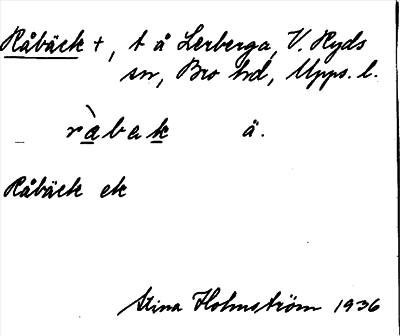 Råbäck +, t å Lerberga, V. Ryds
sn, Bro hd, Upps. l.
ràbak ä.
Råbäck ek
Stina Holmström 1936